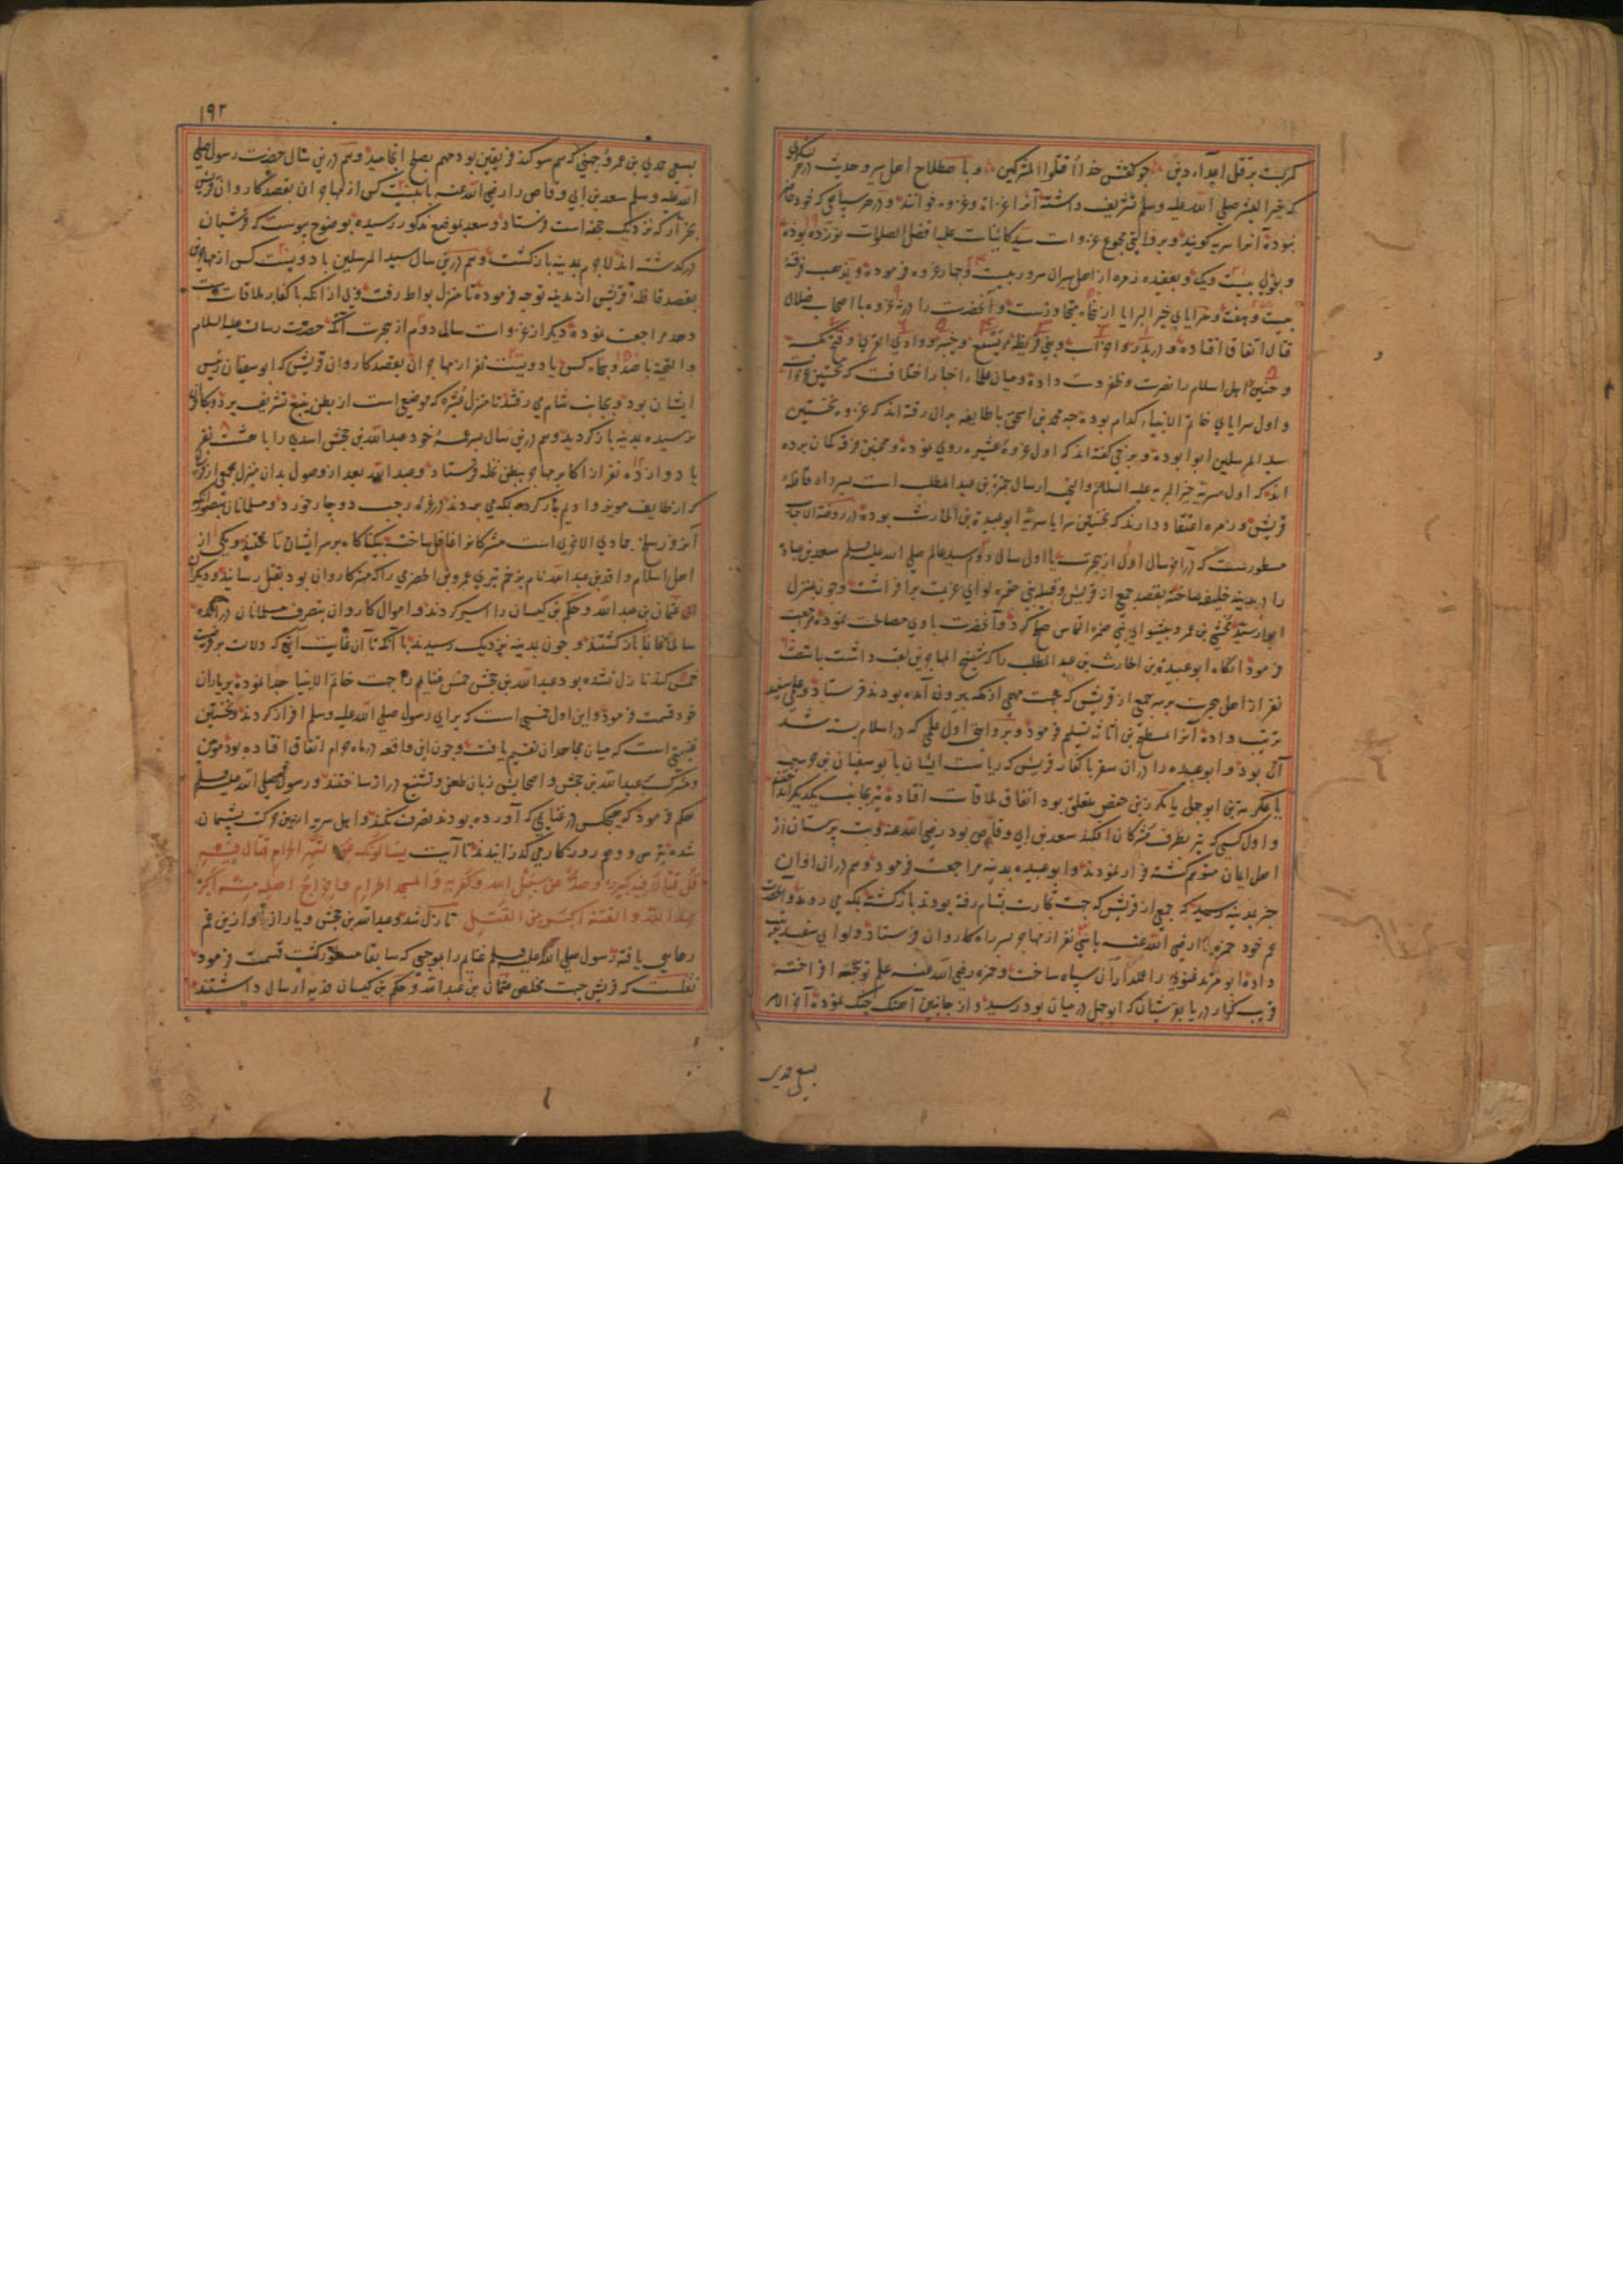 کمر بست بر قتل اعداء دین چو گفتش خدا اقتلوا المشرکین و با صطلاح اهل سیر و حدیث در هر لشکری
که خیر البشر صلی الله علیه وسلم تشریف داشته آنرا غزاة و غزوه خوانند و در هر سپاهی که خود حاضر
نبوده آنرا سریه کویند و بروایتی مجموع غزوات سید کاینات علیه افضل الصلوات نوزده بوده
و بقولی بیست و یک و بعقیده زمره از اهل سیران سرور بیست و چهار غزوه فرموده و بمذهب فرقه
بیست و هفت و سرایای خیر البرایا از پنجاه متجاوزست و آنحضرت را در نه غزوه با اصحاب ضلال
قتال اتفاق افتاده و در بدر و احزاب و بنی قریظه و خیبر و وادی القری و فتح مکه
و حنین اهل اسلام را نصرت و ظفر دست داده و میان علماء اخبار اختلافست که نخستین غزوات
و اول سرایای خاتم الانبیاء کدام بوده چه محمد بن اسحق با طایفه بران رفته اند که غزوه نخستین
سید المرسلین ابوا بوده و برخی کفته اند که اول غزوه عشیره روی نموده و همچنین فرقه کمان برده
اند که اول سریه خیر البریه علیه السلام والتحیه ارسال حمزه بن عبد المطلب است بسر راه قافله
قریش و زمره اعتقاد دارند که نخستین سرایا سریه ابو عبیدة بن الحارث بوده در روضة الاحباب
مسطورست که در اخر سال اول از هجرت یا اول سال دوم سید عالم صلی الله علیه وسلم سعد بن عباده
را در مدینه خلیفه ساخته بقصد جمع از قریش و قبیله بنی ضمره لوای عزیمت برافراشت و چون بمنزل
ابوا رسید مخشی بن عمرو پیشوای بنی ضمره التماس صلح کرد و آنحضرت با وی مصالحت نموده مراجعت
فرمود آنکاه ابو عبیدة بن الحارث بن عبد المطلب را که شیخ المهاجرین لقب داشت با شصت
نفر از اهل هجرت بر سر جمع از قریش که بجهت مهمی از مکه بیرون آمده بودند فرستاد و علمی سفید
ترتیب داده آنرا بمسطح بن اثاثه تسلیم فرمود و بروایتی اول علمی که در اسلام بسته شد
آن بود و ابو عبیده را در ان سفر با کفار قریش که ریاست ایشان با بوسفیان بن حرب
یا عکرمه بن ابو جهل یا مکرز بن حفص متعلق بود اتفاق ملاقات افتاده تیر بجانب یکدیکر انداختند
و اول کسی که تیر بطرف مشرکان افکند سعد بن ابی وقاص بود رضی الله عنه و بت پرستان از
اهل ایمان متوهم کشته فرار نمودند و ابو عبیده بمدینه مراجعت فرمود و هم در ان اوان
خبر بمدینه رسید که جمعی از قریش که جهت تجارت بشام رفته بودند باز کشته بمکه می روند و آنحضرت
عم خود حمزه را رضی الله عنه با سی نفر از مهاجر بسر راه کاروان فرستاد و لوای سفید ترتیب
داده ابو مرثد غنوی را علمدار آن سپاه ساخت و حمزه رضی الله عنه علم توجه افراخته
قریب کنار دریا بقریشان که ابو جهل در میان بود رسید و از جانبین آهنک جنک نموده آخر الامر
بسعی مجدی
۱۹۲
بسعی مجدی بن عمرو جهنی که هم سوکند فریقین بود مهم بصلح انجامید و هم درین سال حضرت رسول صلی
الله علیه وسلم سعد بن ابی وقاص را رضی الله عنه با بیست کس از مهاجران بقصد کاروان قریش
بخرار که نزدیک جحفه است فرستاد و سعد بموضع مذکور رسیده بوضوح پیوست که قرشیان
درکذشته اند لاجرم بمدینه باز کشت و هم درین سال سید المرسلین با دویست کس از مهاجران
بقصد قافله قریش از مدینه توجه فرموده تا منزل بواط رفت و بی ازانکه با کفار ملاقات دست
دهد مراجعت نموده دیکر از غزوات سال دوم از هجرت آنکه حضرت رسالت علیه السلام
والتحیة با صد و پنجاه کس یا دویست نفر از مهاجران بقصد کاروان قریش که ابو سفیان رئیس
ایشان بود و بجانب شام می رفتند تا منزل عشیره که موضعی است از بطن ینبع تشریف برد و بکاروان
نرسیده بمدینه باز کردید و هم درین سال پسر عمه خود عبد الله بن جحش اسدی را با هشت نفر
یا دوازده نفر از اکابر مهاجر ببطن نخله فرستاد و عبد الله بعد از وصول بدان منزل بجمعی از قریش
که از طایف مویز و ادیم بار کرده بمکه می بردند در غره رجب دوچار خورد و مسلمانان بتصور آنکه
آنروز سلخ جمادی الاخری است مشرکانرا غافل ساخته بیکناکاه بر سر ایشان تاختند و یکی از
اهل اسلام واقد بن عبد الله نام بزخم تیری عمرو بن الحضرمی را که مهتر کاروان بود بقتل رسانید و دیکران
عثمان بن عبد الله و حکم بن کیسان را اسیر کردند و اموال کاروان بتصرف مسلمانان درآمده
سالما غانما باز کشتند و چون بمدینه نزدیک رسیدند با آنکه تا آن غایت آیتی که دلالت بر فرضیت
خمس کند نازل نشده بود عبد الله بن جحش خمس غنایم را جهت خاتم الانبیا جدا نموده بر یاران
خود قسمت فرمود و این اول خمسی است که برای رسول صلی الله علیه وسلم افراز کردند و نخستین
غنیمتی است که میان مجاهدان تقسیم یافت و چون این واقعه در ماه حرام اتفاق افتاده بود مومن
و مشرک بعبد الله بن جحش و اصحابش زبان طعن و تشنیع دراز ساختند و رسول صلی الله علیه وسلم
حکم فرمود که هیچکس در غنایمی که آورده بودند تصرف نکند و اهل سریه ازین حرکت پشیمان
شده بترس و وهم روزکار می کذرانیدند تا آیت یسالونک عن الشهر الحرام قتال فیه
قل قتال فیه کبیر و صد عن سبیل الله و کفر به و المسجد الحرام و اخراج اهله منه اکبر
عند الله و الفتنة اکبر من القتل نازل شد و عبد الله بن جحش و یاران او ازین غم
رهایی یافته رسول صلی الله علیه وسلم غنایم را بموجبی که سابقا مسطور کشت قسمت فرمود
نقلست که قریش جهت مخلص عثمان بن عبد الله و حکم بن کیسان فدیه ارسال داشتند